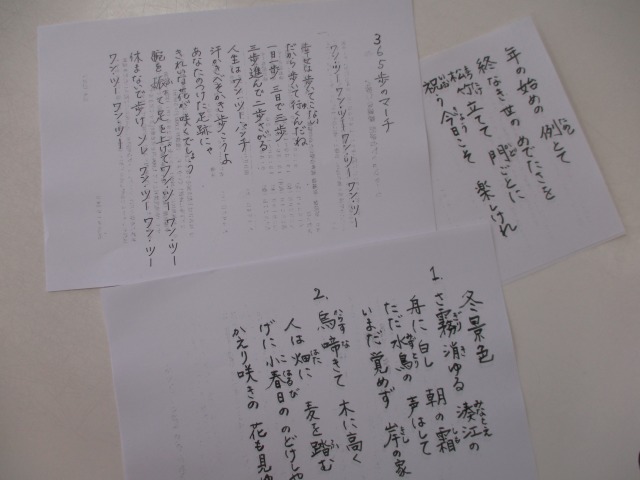 365歩のマーチ
ワン・ツー ワン・ツー ワン・ツー ワン・ツー
幸せは歩いてこない
だから歩いて行くんだね
一日一歩 三日で三歩
三歩進んで 二歩さがる
人生は ワン・ツー・パンチ
汗かきべそかき歩こうよ
あなたのつけた足跡にゃ
きれいな花が咲くでしょう
腕を振って足を上げてワン・ツー ワン・ツー
休まないで歩け ソレ ワン・ツー ワン・ツー
ワン・ツー ワン・ツー
年の始めの 例とて
終なき世の めでたさを
松竹立てて 門ごとに
祝う今日こそ 楽しけれ
冬景色
1. さ霧消ゆる 湊江の
舟に白し 朝の霜
ただ水鳥の 声はして
いまだ覚めず 岸の家
2. 烏啼きて 木に高く
人は畑に 麦を踏む
げに小春日の のどけしや
かえり咲きの 花も見ゆ